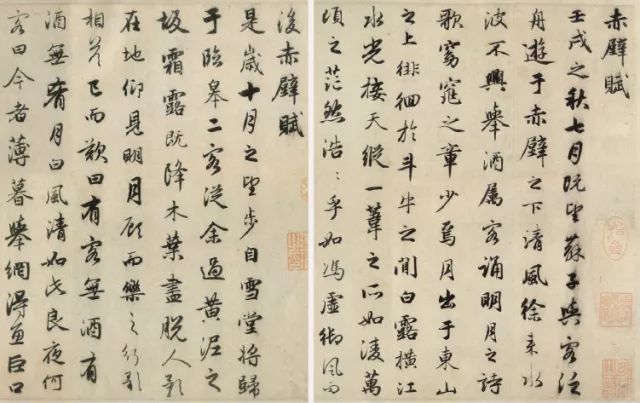 赤壁賦
壬戌之秋七月既望蘇子與客泛
舟遊于赤壁之下清風徐来水
波不興舉酒屬客誦明月之詩
歌窈窕之章少焉月出于東山
之上徘徊於斗牛之間白露橫江
水光接天縱一葦之所如凌萬
頃之茫然浩〻乎如馮虛御風而
後赤壁賦
是歲十月之望步自雪堂將歸
于臨皋二客從余過黃泥之
坂霜露既降木葉盡脫人影
在地仰見明月顧而樂之行歌
相答已而歎曰有客無酒有
酒無肴月白風清如此良夜何
客曰今者薄暮舉網得魚巨口